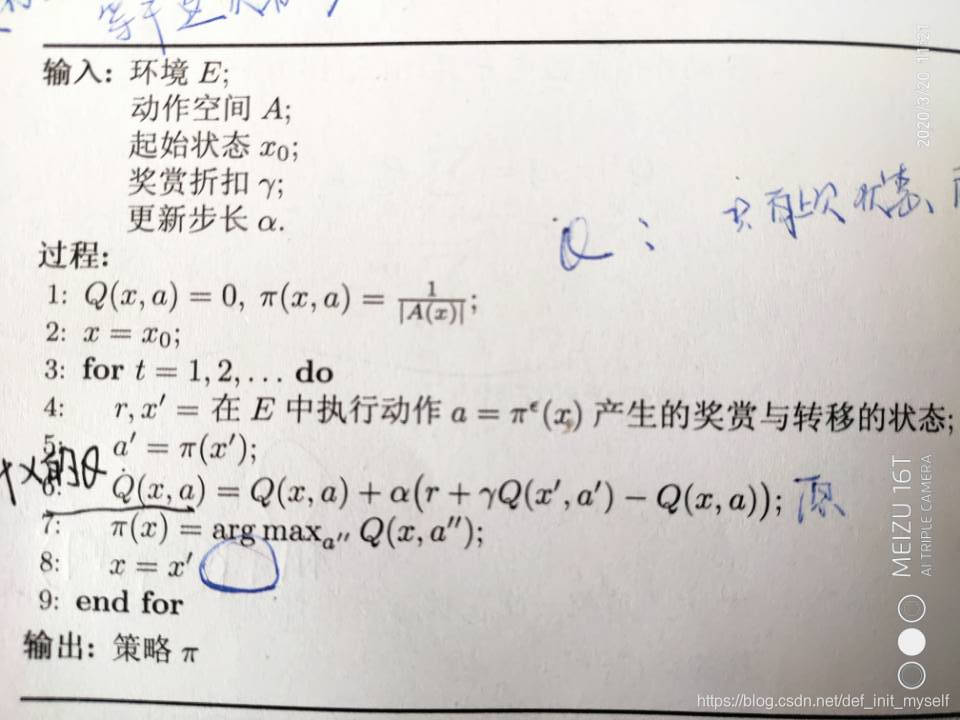 输入: 环境 E;
动作空间 A;
起始状态 x₀;
奖赏折扣 γ;
更新步长 α.
Q: 只有上次状态、
过程:
1: Q(x, a) = 0, π(x, a) = 1/|A(x)|;
2: x = x₀;
3: for t = 1, 2, ... do
4: r, x′ = 在 E 中执行动作 a = π^ϵ(x) 产生的奖赏与转移的状态;
5: a′ = π(x′);
的Q
6: Q(x, a) = Q(x, a) + α(r + γQ(x′, a′) − Q(x, a));
7: π(x) = arg max_a″ Q(x, a″);
8: x = x′
9: end for
输出: 策略 π
2020/3/20 11:21
MEIZU 16T
AI TRIPLE CAMERA
https://blog.csdn.net/def_init_myself